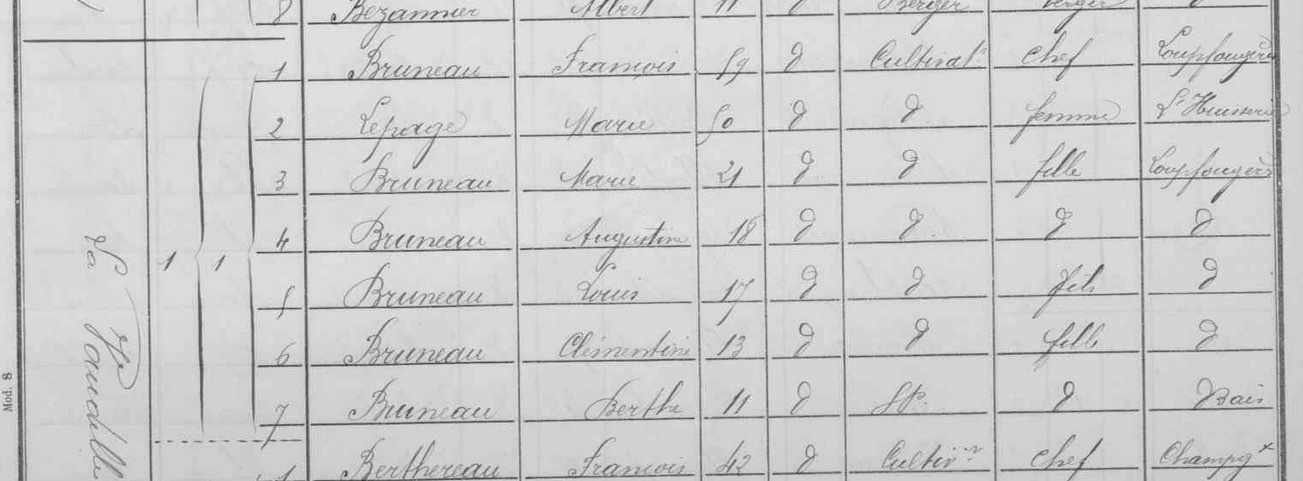 8 Bezannier Albert 11 d Berger berger d
1 Bruneau Francois 59 d Cultivatr chef Loupfougères
2 Lepage Marie 50 d d femme Lt Huisserie
3 Bruneau Marie 21 d d fille Loupfougères
4 Bruneau Augustine 18 d d d d
La Hte Vaudelle
1 1
5 Bruneau Louis 17 d d fils d
6 Bruneau Clémentine 13 d d fille d
7 Bruneau Berthe 11 d SP. d Bais
1 Berthereau Francois 42 d Cultivr chef Champgx
Mod. 8